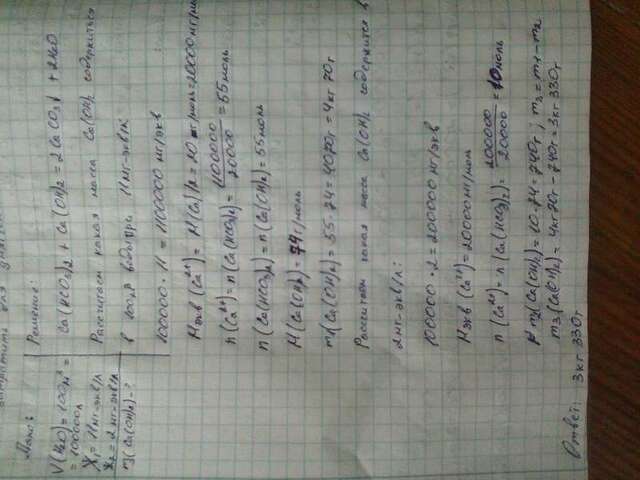 затратить для умягчения
Дано:
V(H2O) = 100м³ =
= 100000л
Ж1 = 11мг-экв/л
Ж2 = 2мг-экв/л
m(Ca(OH)2) - ?
Решение:
Ca(HCO3)2 + Ca(OH)2 = 2CaCO3↓ + 2H2O
Рассчитаем какая масса Ca(OH)2 содержится
в воды при 11мг-экв/л
100000 · 11 = 1100000 мг/экв
Mэкв (Ca²⁺) = M(Ca)/2 = 20 мг/моль = 20000 мг/моль
n(Ca²⁺) = n(Ca(HCO3)2) = 1100000/20000 = 55 моль
n(Ca(HCO3)2) = n(Ca(OH)2) = 55 моль
M(Ca(OH)2) = 74 г/моль
m1(Ca(OH)2) = 55 · 74 = 4070г = 4кг 70г
Рассчитаем какая масса Ca(OH)2 содержится в
2мг-экв/л:
100000 · 2 = 200000 мг/экв
Mэкв (Ca²⁺) = 20000 мг/моль
n(Ca²⁺) = n(Ca(HCO3)2) = 200000/20000 = 10 моль
m2(Ca(OH)2) = 10 · 74 = 740г; m3 = m1 - m2
m3(Ca(OH)2) = 4кг 70г - 740г = 3кг 330г
Ответ: 3кг 330г